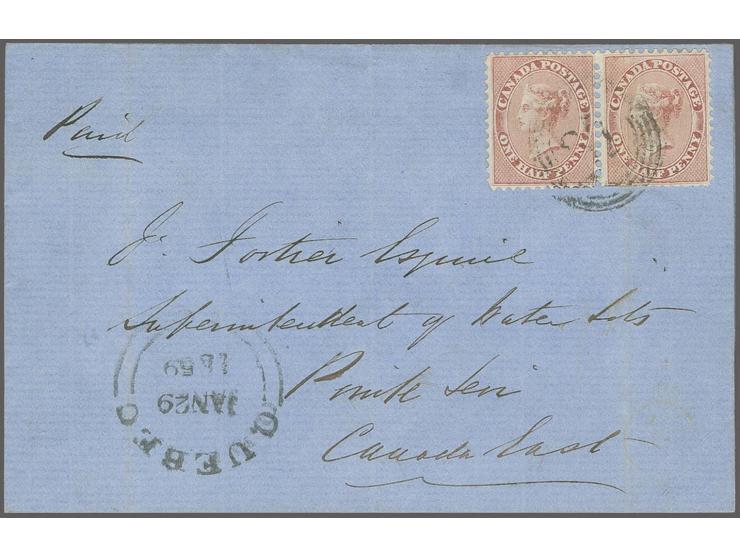 Paid
CANADA POSTAGE
ONE HALF PENNY
CANADA POSTAGE
ONE HALF PENNY
J. Fortier Esquire
Superintendent of Water Lots
Pointe Levi
Canada East
QUEBEC
JAN 29
1859